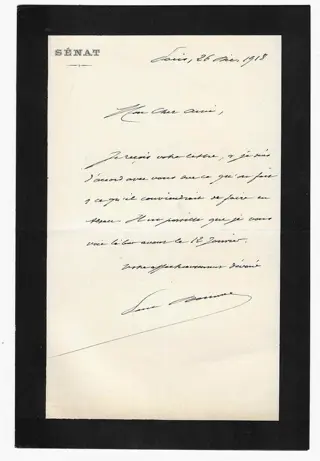 SÉNAT
Paris, 26 Déc. 1913
Mon cher ami,
Je reçois votre lettre, & je suis
d'accord avec vous sur ce qui se fait
& ce qu'il conviendrait de faire en
que je vous
voie avant le 12 Janvier.
Votre affectueusement dévoué